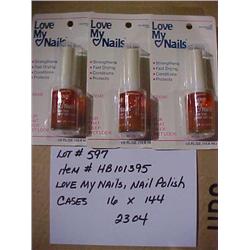 Love My Nails
Love My Nails
Love My Nails
Strengthens
Fast Drying
Conditions
Protects
Strengthens
Fast Drying
Conditions
Protects
Strengthens
Fast Drying
Conditions
Protects
LOT # 597
Item # HB101395
LOVE MY NAILS, NAIL POLISH
CASES 16 X 144
2304